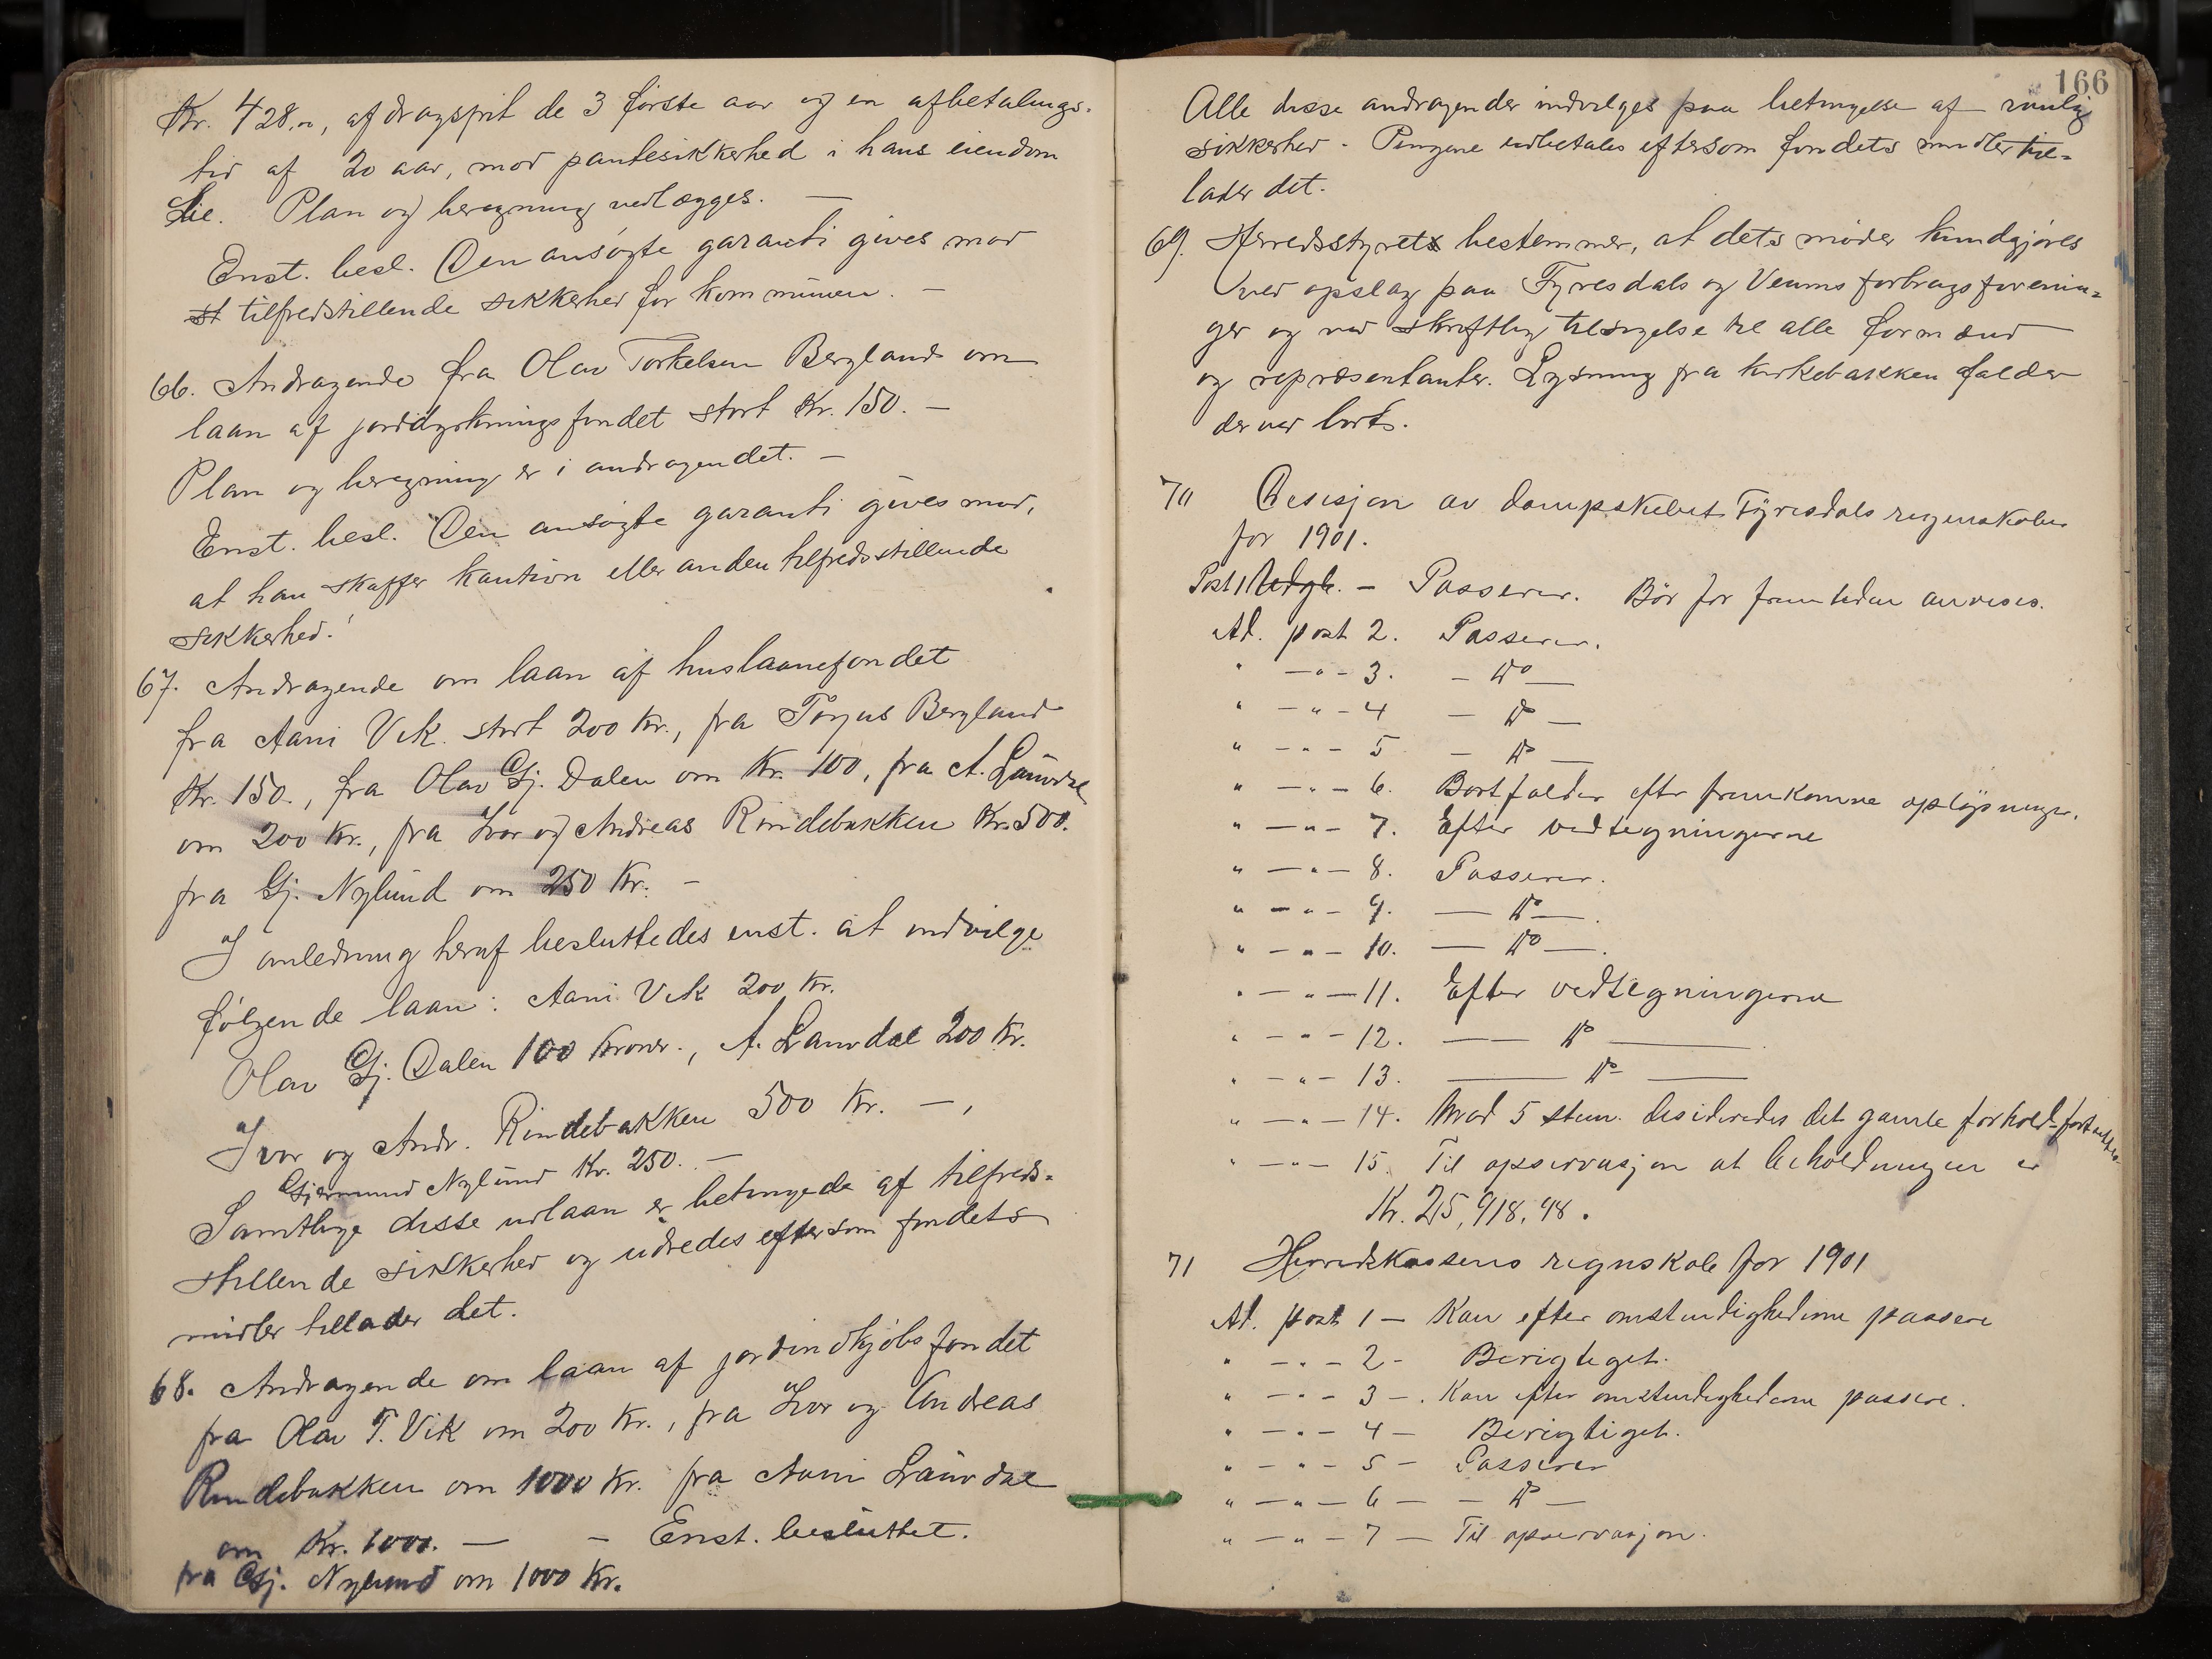 Kr. 428,00, afdragsfrit de 3 første aar og en afbetalings-
tid af 20 aar, mod pantesikkerhed i hans eiendom
Lie. Plan og beregning vedlægges. —
Enst. besl. Den ansøgte garanti gives mod
st tilfredstillende sikkerhed for kommunen. —
66. Andragende fra Olav Torkelsen Bergland om
laan af jorddyrkningsfondet stort Kr. 150. —
Plan og beregning er i andragendet. —
Enst. besl. Den ansøgte garanti gives mod,
at han skaffer kaution eller anden tilfredsstillende
sikkerhed.
67. Andragende om laan af huslaanefondet
fra Aani Vik stort 200 Kr., fra Torjus Bergland
Kr. 150., fra Olav Gj. Dalen om Kr. 100, fra A. Lauvdal
om 200 Kr., fra Ivor og Andreas Rindebakken Kr. 500.
fra Gj. Nylund om 250 Kr. —
I anledning heraf besluttedes enst. at indvilge
følgende laan: Aani Vik 200 Kr.
Olav Gj. Dalen 100 Kroner., A. Lauvdal 200 Kr.
Ivor og Andr. Rindebakken 500 Kr. —,
Gjermund Nylund Kr. 250. —
Samtlige disse udlaan er betingede af tilfreds-
stillende sikkerhed og udredes eftersom fondets
midler tillader det.
68. Andragende om laan af jordindkjøbsfondet
fra Olav T. Vik om 200 Kr., fra Ivor og Andreas
Rindebakken om 1000 Kr. fra Aani Lauvdal
om Kr. 1000. — – Enst. besluttet.
fra Gj. Nylund om 1000 Kr.
166
Alle disse andragender indvilges paa betingelse af vanlig
sikkerhed - Pengene udbetales eftersom fondets midler til-
lader det.
69. Herredsstyrets bestemmer, at dets møder kundgjøres
ved opslag paa Fyresdals og Veums forbrugsforenin-
ger og ved skriftlig tilsigelse til alle formænd
og repræsentanter. Lysning fra kirkebakken falder
derved bort.
70 Desisjon av dampskibet Fyresdals regnskaber
for 1901.
Post 1 Udgt. – Passerer. Bør for fremtiden anvises.
Ad. post 2. Passerer.
" — " – 3. – Do —
" — " – 4 — Do —
" — " – 5 — Do —
" — " – 6. Bortfalder efter fremkomne oplysninger.
" — " – 7. Efter vedtegningerne
" — " – 8. Passerer.
" — " – 9. — Do —.
" — " – 10. — Do —.
" — " – 11. Efter vedtegningerne
" — " – 12. — Do —
" — " – 13. — Do —
" — " – 14. Mod 5 stem. desideredes det gamle forhold fortsættes
" — " – 15. Til opservasjon at beholdningen er
Kr. 25,918,98.
71 Herredskassens regnskab for 1901
Ad. post 1 — Kan efter omstendighederne passere
" — " – 2 - Berigtiget.
" — " – 3 —. Kan efter omstendighederne passere.
" — " – 4 — Berigtiget.
" — " – 5 – Passerer
" — " – 6 — – Do —
" — " – 7 — Til opservasjon.